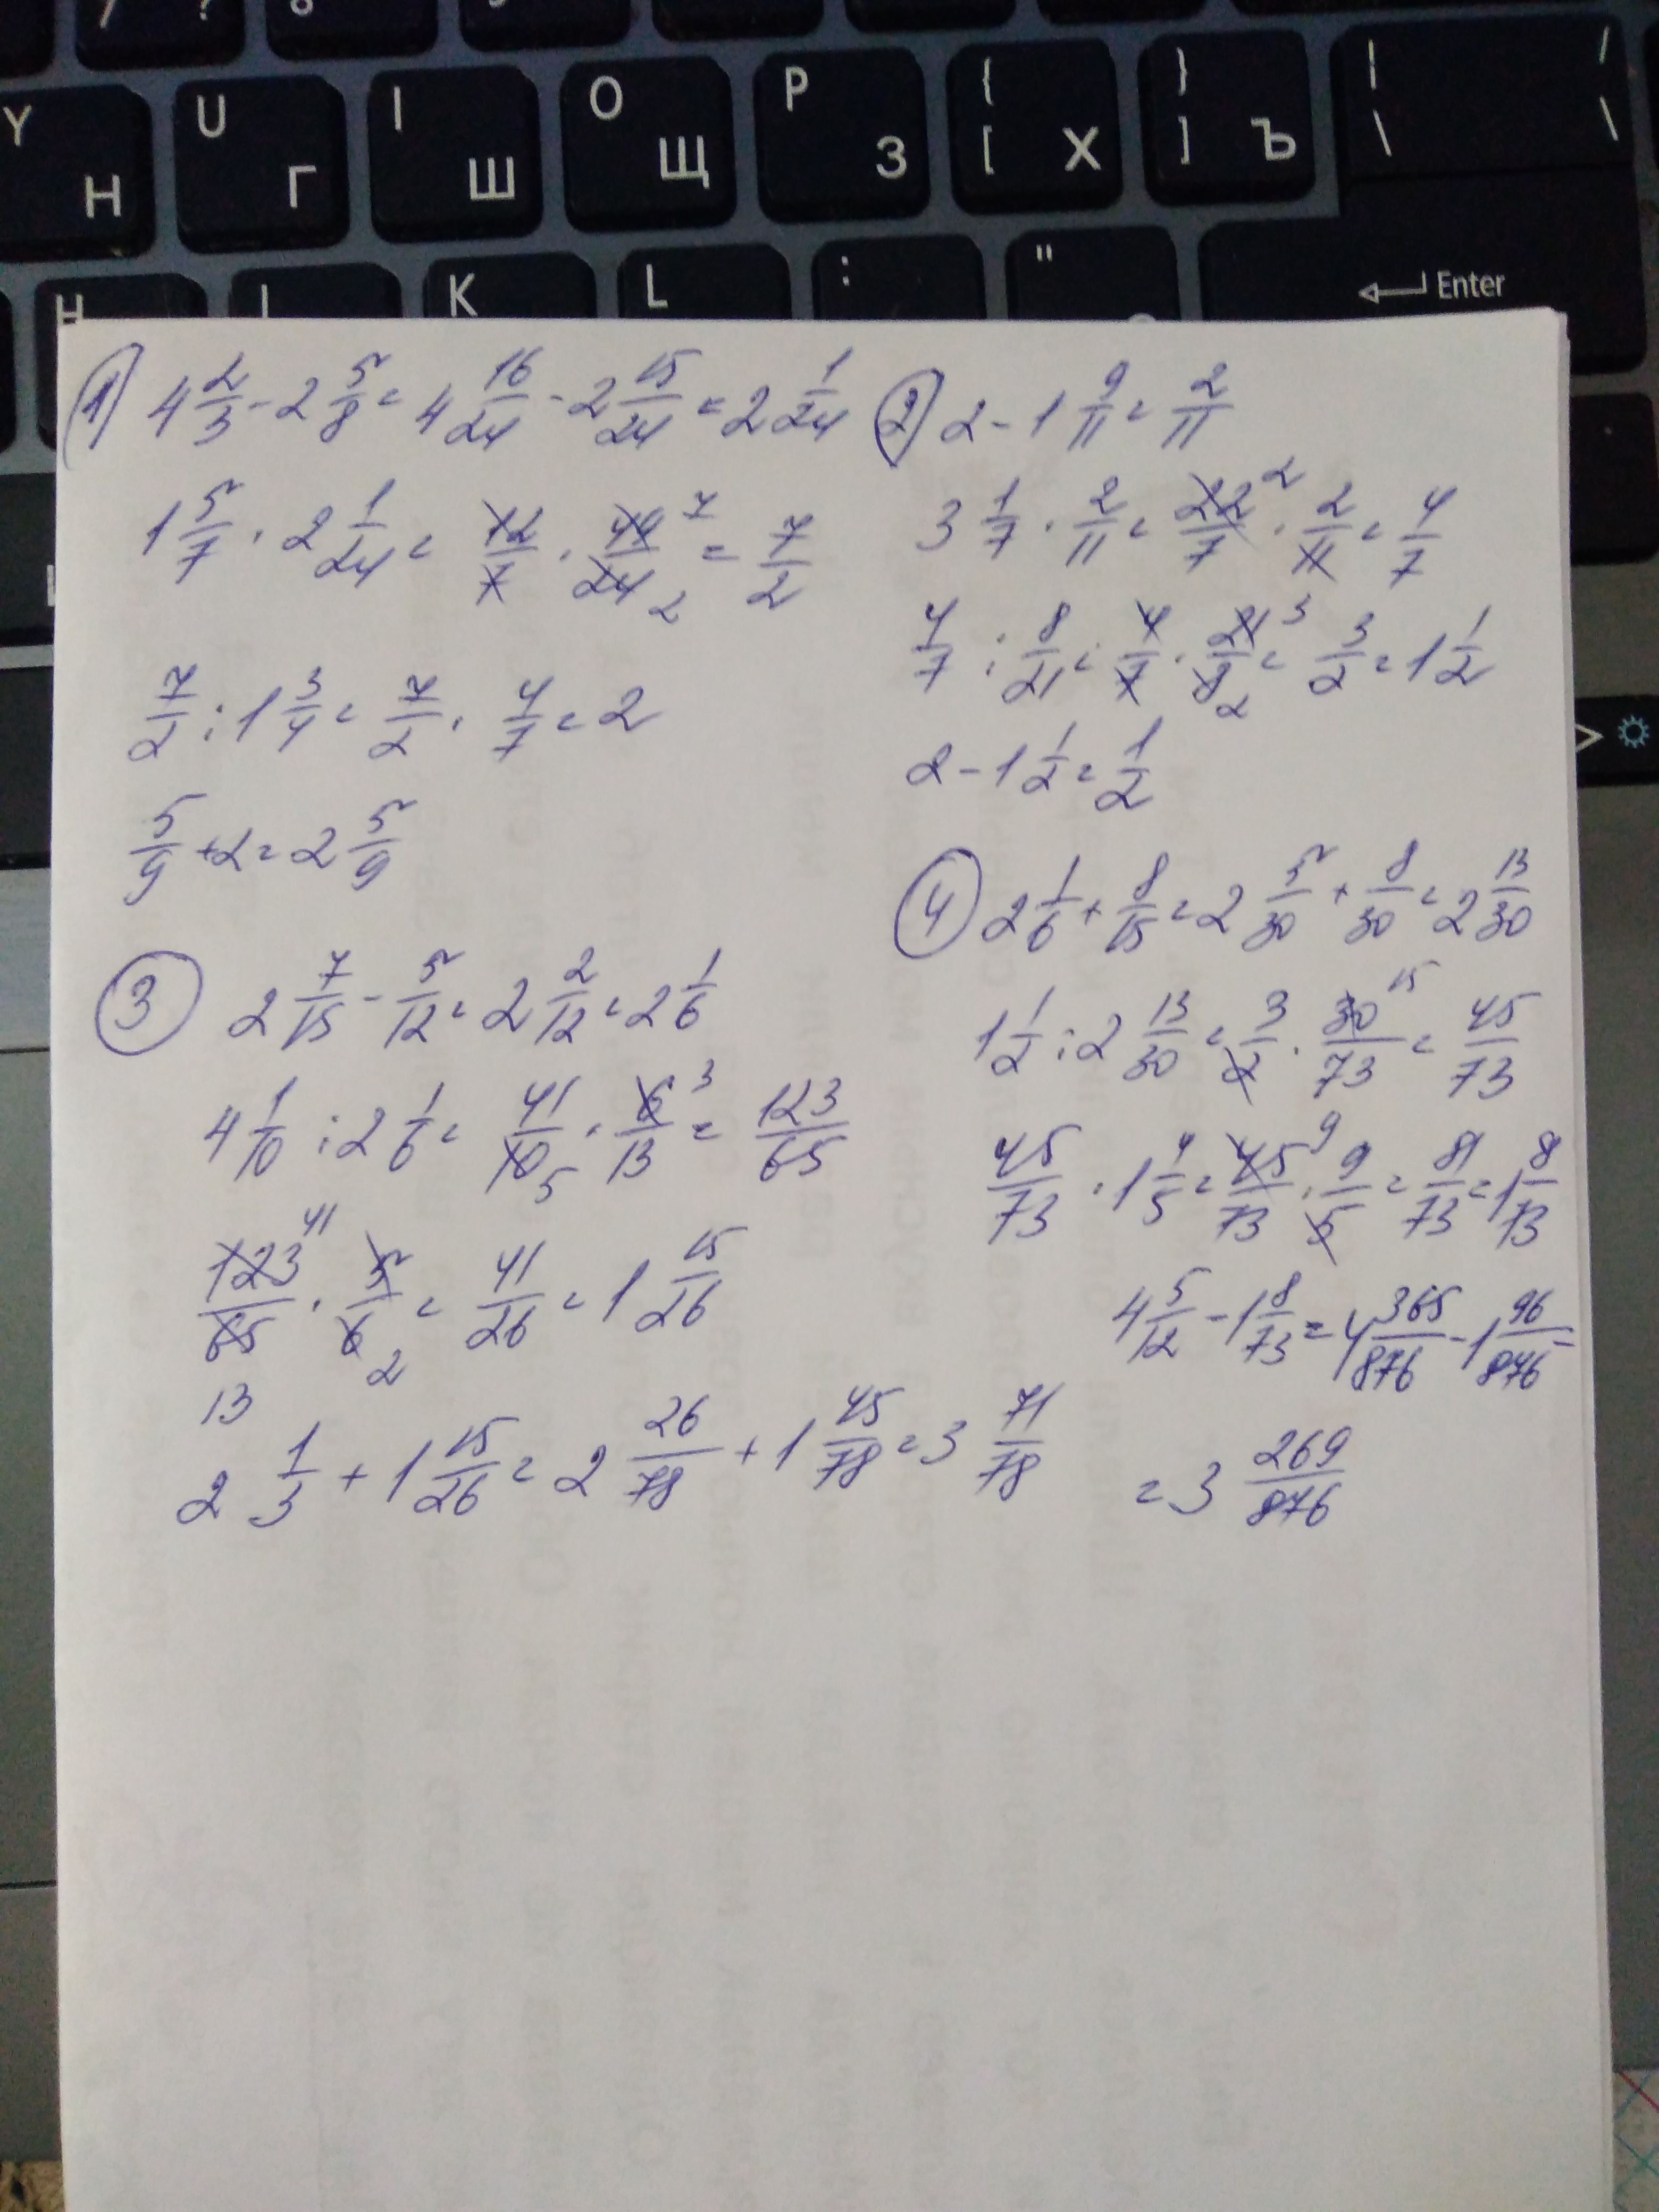 Y Н U Г I Ш O Щ P З { [ Х } ] Ъ | \ / \
H J K L : " Enter
1) 4 2/3 - 2 5/8 = 4 16/24 - 2 15/24 = 2 1/24
1 5/7 · 2 1/24 = 12/7 · 49/24 = 7/2
7
2
7/2 : 1 3/4 = 7/2 · 4/7 = 2
5/9 + 2 = 2 5/9
2) 2 - 1 9/11 = 2/11
3 1/7 · 2/11 = 22/7 · 2/11 = 4/7
2
4/7 : 8/21 = 4/7 · 21/8 = 3/2 = 1 1/2
3
2
2 - 1 1/2 = 1/2
3 2 7/15 - 5/12 = 2 2/12 = 2 1/6
4 1/10 : 2 1/6 = 41/10 · 6/13 = 123/65
3
5
123/65 · 5/6 = 41/26 = 1 15/26
41
13
2
2 1/3 + 1 15/26 = 2 26/78 + 1 45/78 = 3 71/78
4 2 1/6 + 8/15 = 2 5/30 + 8/30 = 2 13/30
1 1/2 : 2 13/30 = 3/2 · 30/73 = 45/73
15
45/73 · 1 4/5 = 45/73 · 9/5 = 81/73 = 1 8/73
9
4 5/12 - 1 8/73 = 4 365/876 - 1 96/876 =
= 3 269/876